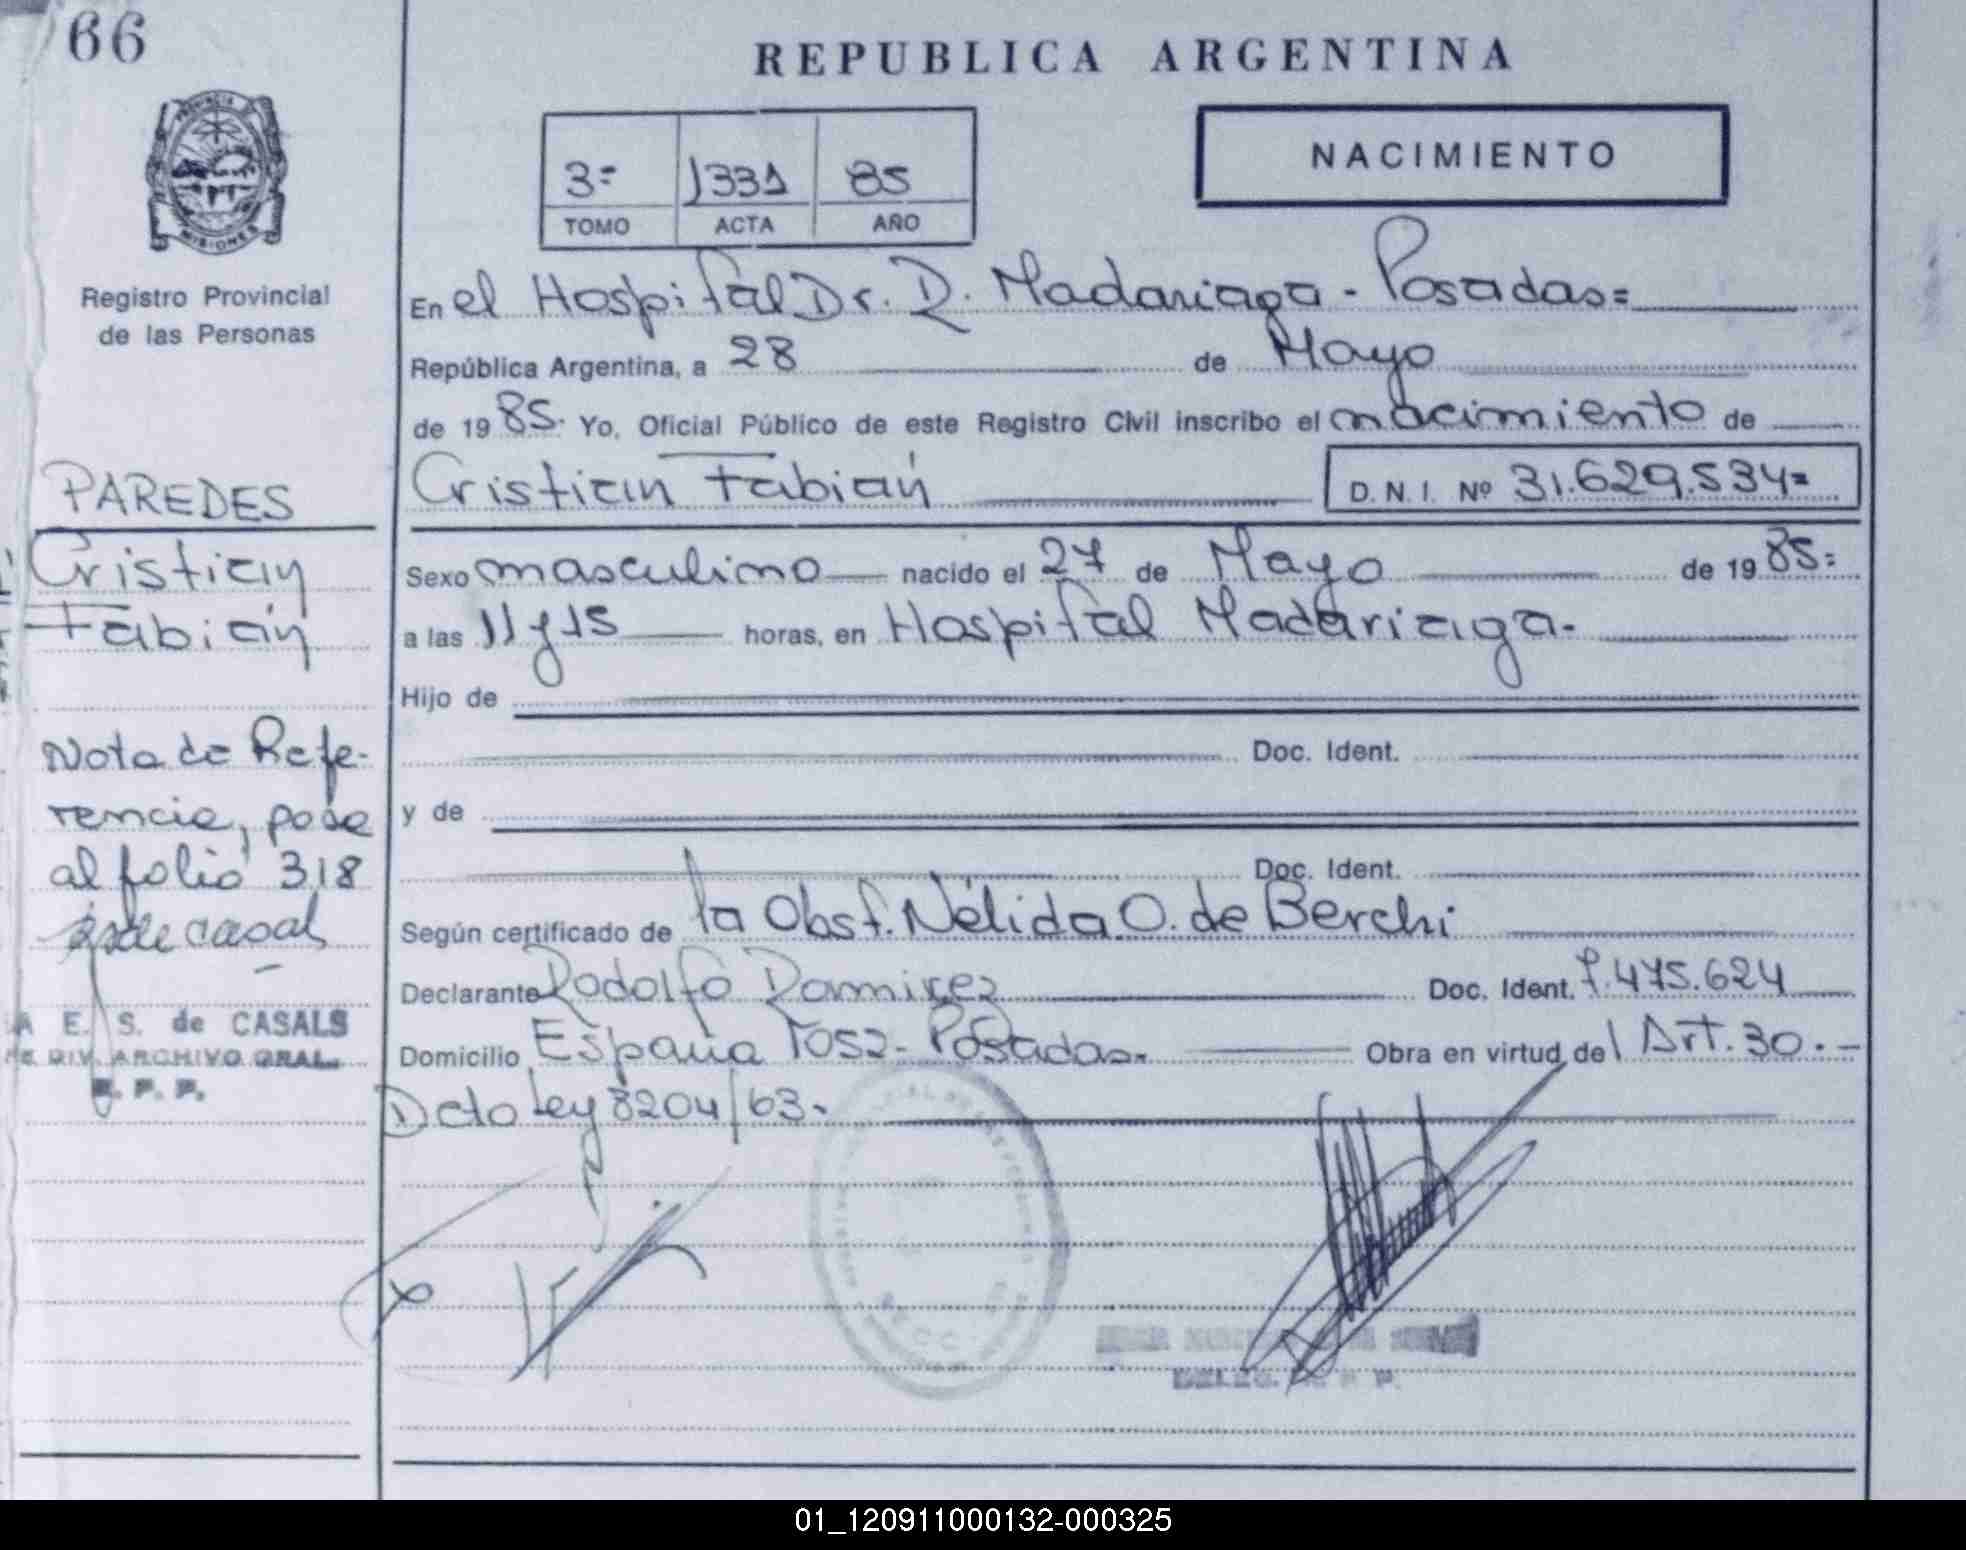 66
REPUBLICA ARGENTINA
PROVINCIA
MISIONES
Registro Provincial
de las Personas
3= 1331 85
TOMO ACTA AÑO
NACIMIENTO
En el Hospital Dr. R. Madariaga - Posadas=
República Argentina, a 28 de Mayo
de 1985. Yo, Oficial Público de este Registro Civil inscribo el nacimiento de
Cristian Fabián D.N.I. Nº 31.629.534=
Sexo masculino nacido el 27 de Mayo de 1985=
a las 11 y 15 horas, en Hospital Madariaga.
Hijo de
Doc. Ident.
y de
Doc. Ident.
Según certificado de la Obst. Nélida O. de Berchi
Declarante Rodolfo Ramirez Doc. Ident. 7.475.624
Domicilio España 1052- Posadas. Obra en virtud del Art. 30.-
Dcto Ley 8204/63.
PAREDES
Cristian
Fabián
Nota de Refe-
rencia, pasa
al folio 318
de casal
A E. S. de CASALS
DIV. ARCHIVO GRAL.
R. P. P.
01_120911000132-000325